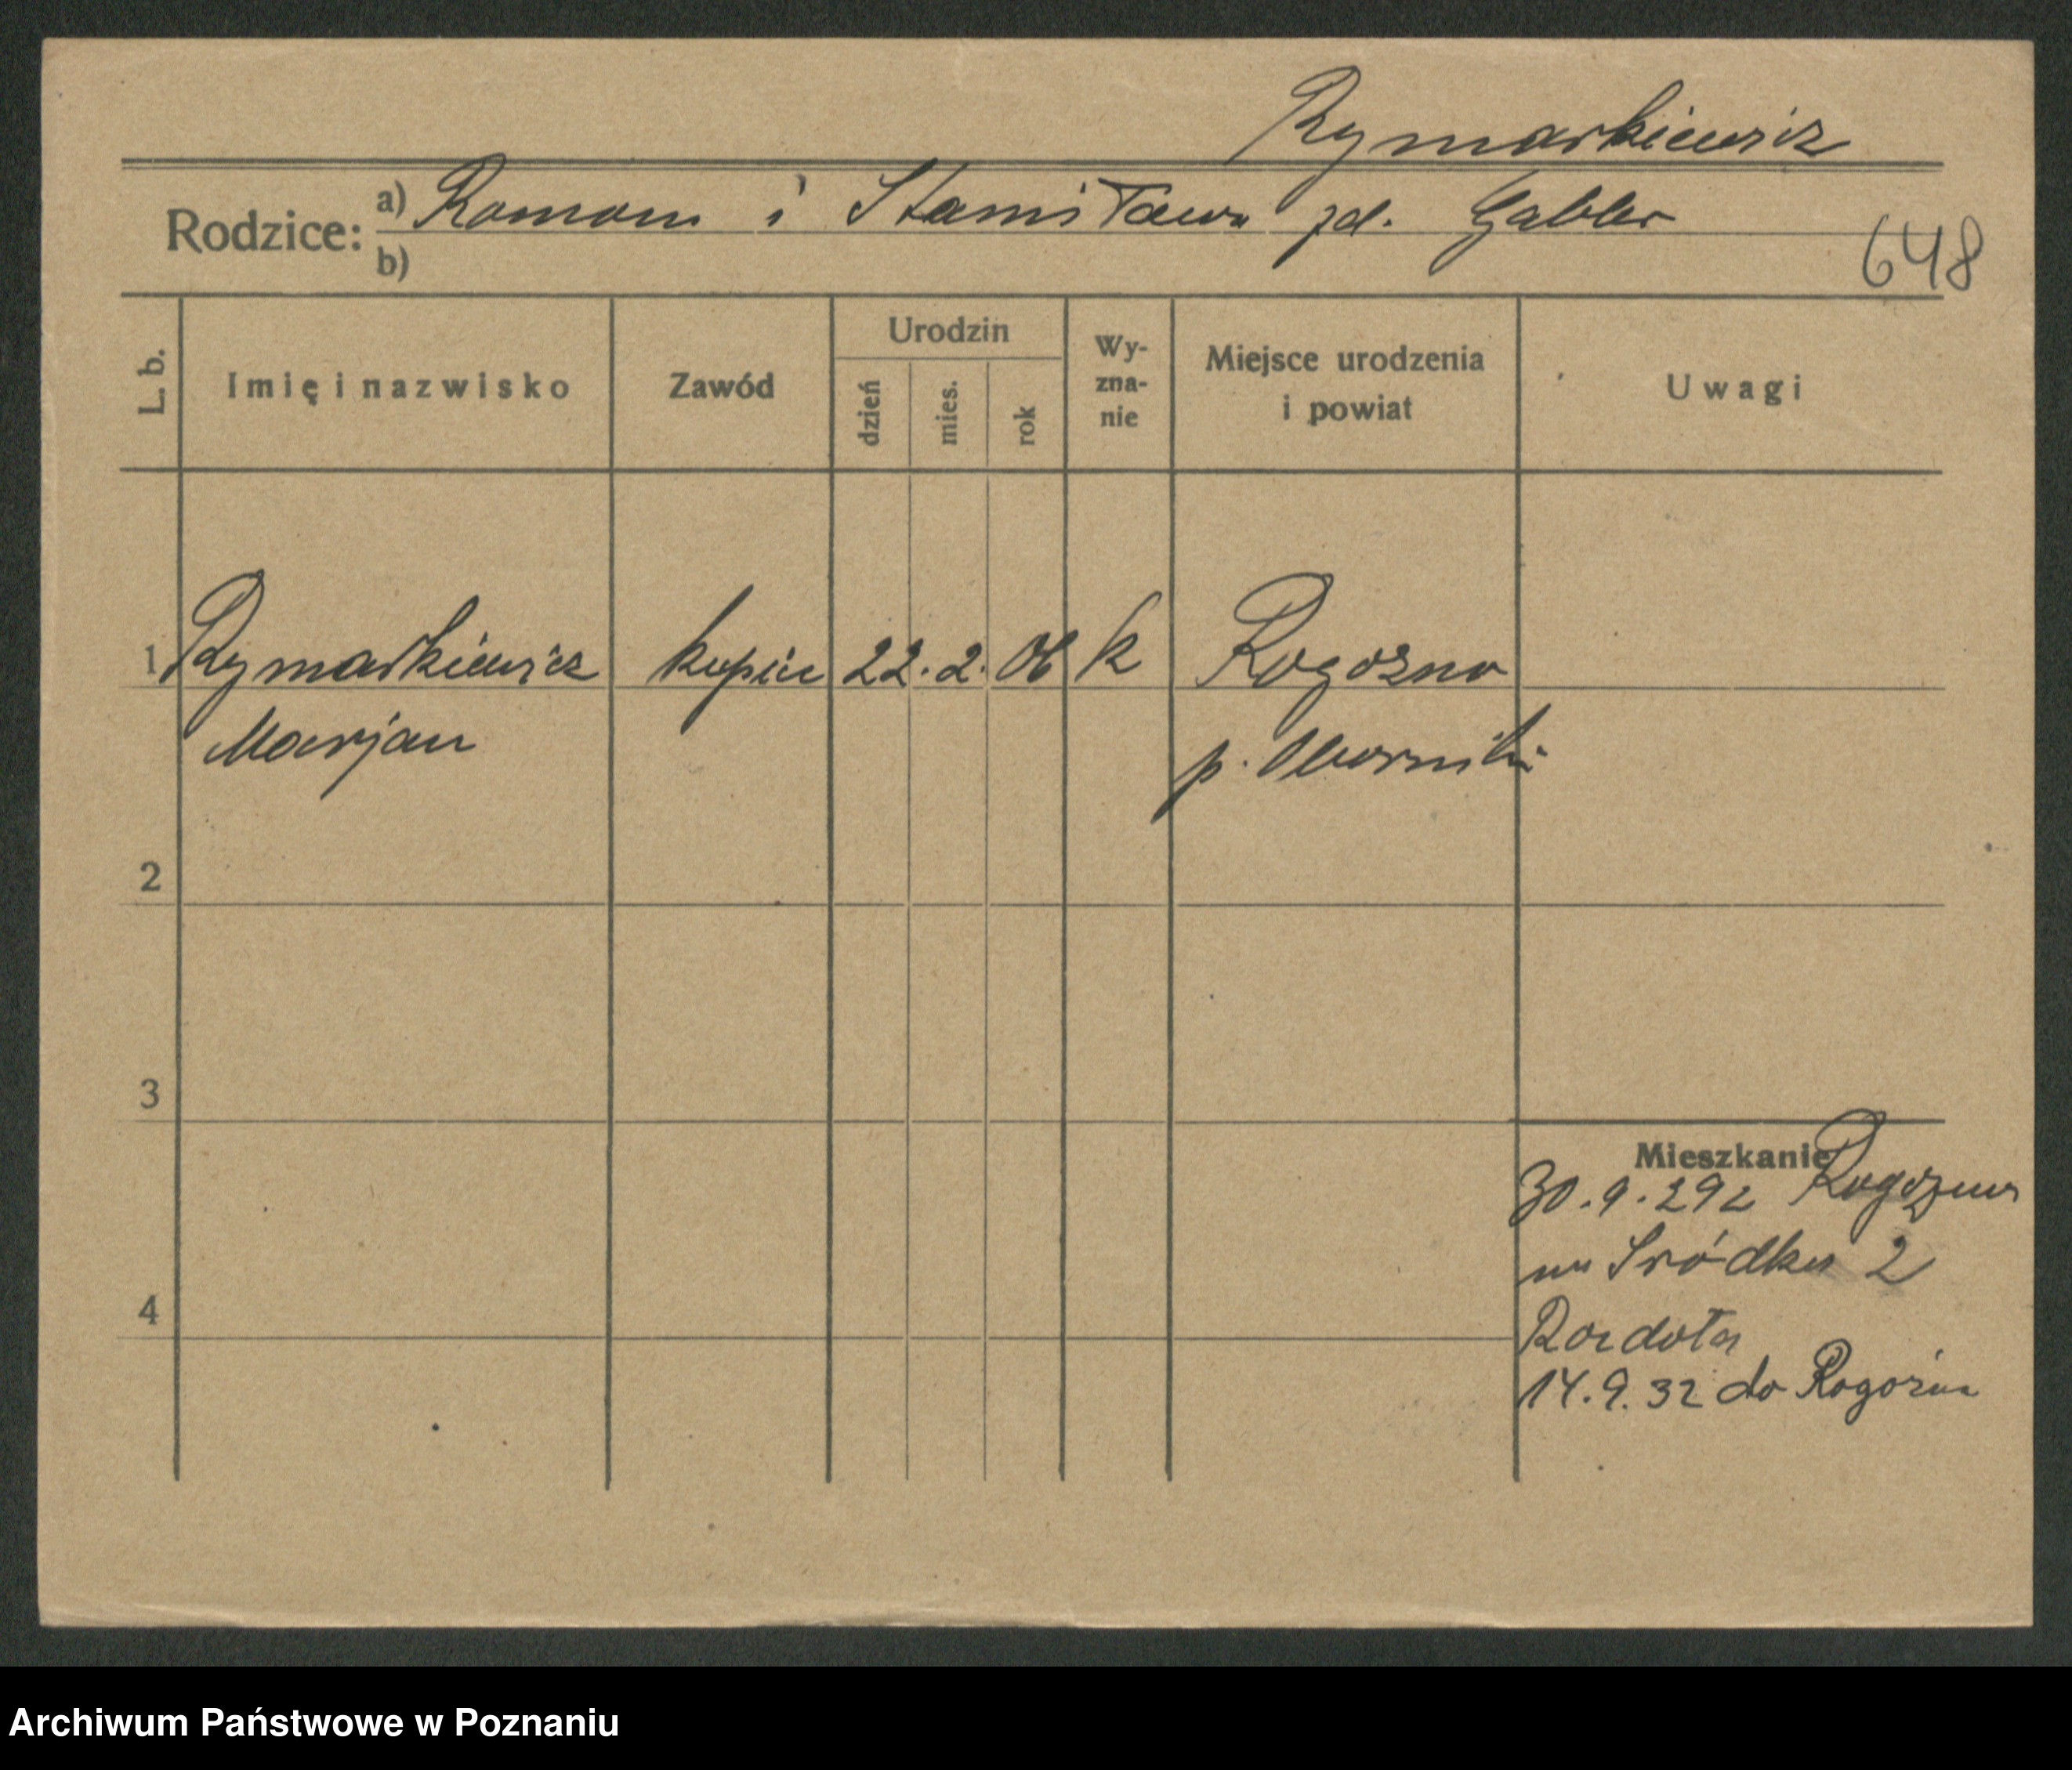 Rymarkiewicz
Rodzice: a) Roman i Stanisława zd. Gabler
b)
648
L. b.
Imię i nazwisko
Zawód
Urodzin
dzień
mies.
rok
Wy-
zna-
nie
Miejsce urodzenia
i powiat
Uwagi
1 Rymarkiewicz kupiec 22. 2. 06 k Rogozno
Marjan p. Oborniki
2
3
Mieszkanie
30.9.29 z Rogozna
na Śródka 2
4
14.9.32 do Rogozna
Archiwum Państwowe w Poznaniu